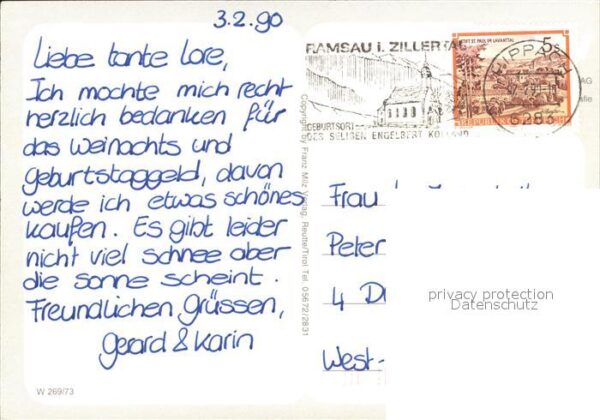 3.2.90
Liebe tante Lore,
Ich mochte mich recht
herzlich bedanken für
das Weinachts und
geburtstaggeld, davon
werde ich etwas schönes
kaufen. Es gibt leider
nicht viel schnee aber
die sonne scheint.
Freundlichen Grüssen,
Gerard & Karin
W 269/73
Copyright by Franz Milz Verlag, Reutte/Tirol Tel. 05672/2831
RAMSAU i. ZILLERTAL
GEBURTSORT
DES SELIGEN ENGELBERT KOLLAND
STIFT ST. PAUL IM LAVANTTAL
5s
HIPPACH
6283
AG
Frau
Peter
4 D
West-
privacy protection
Datenschutz